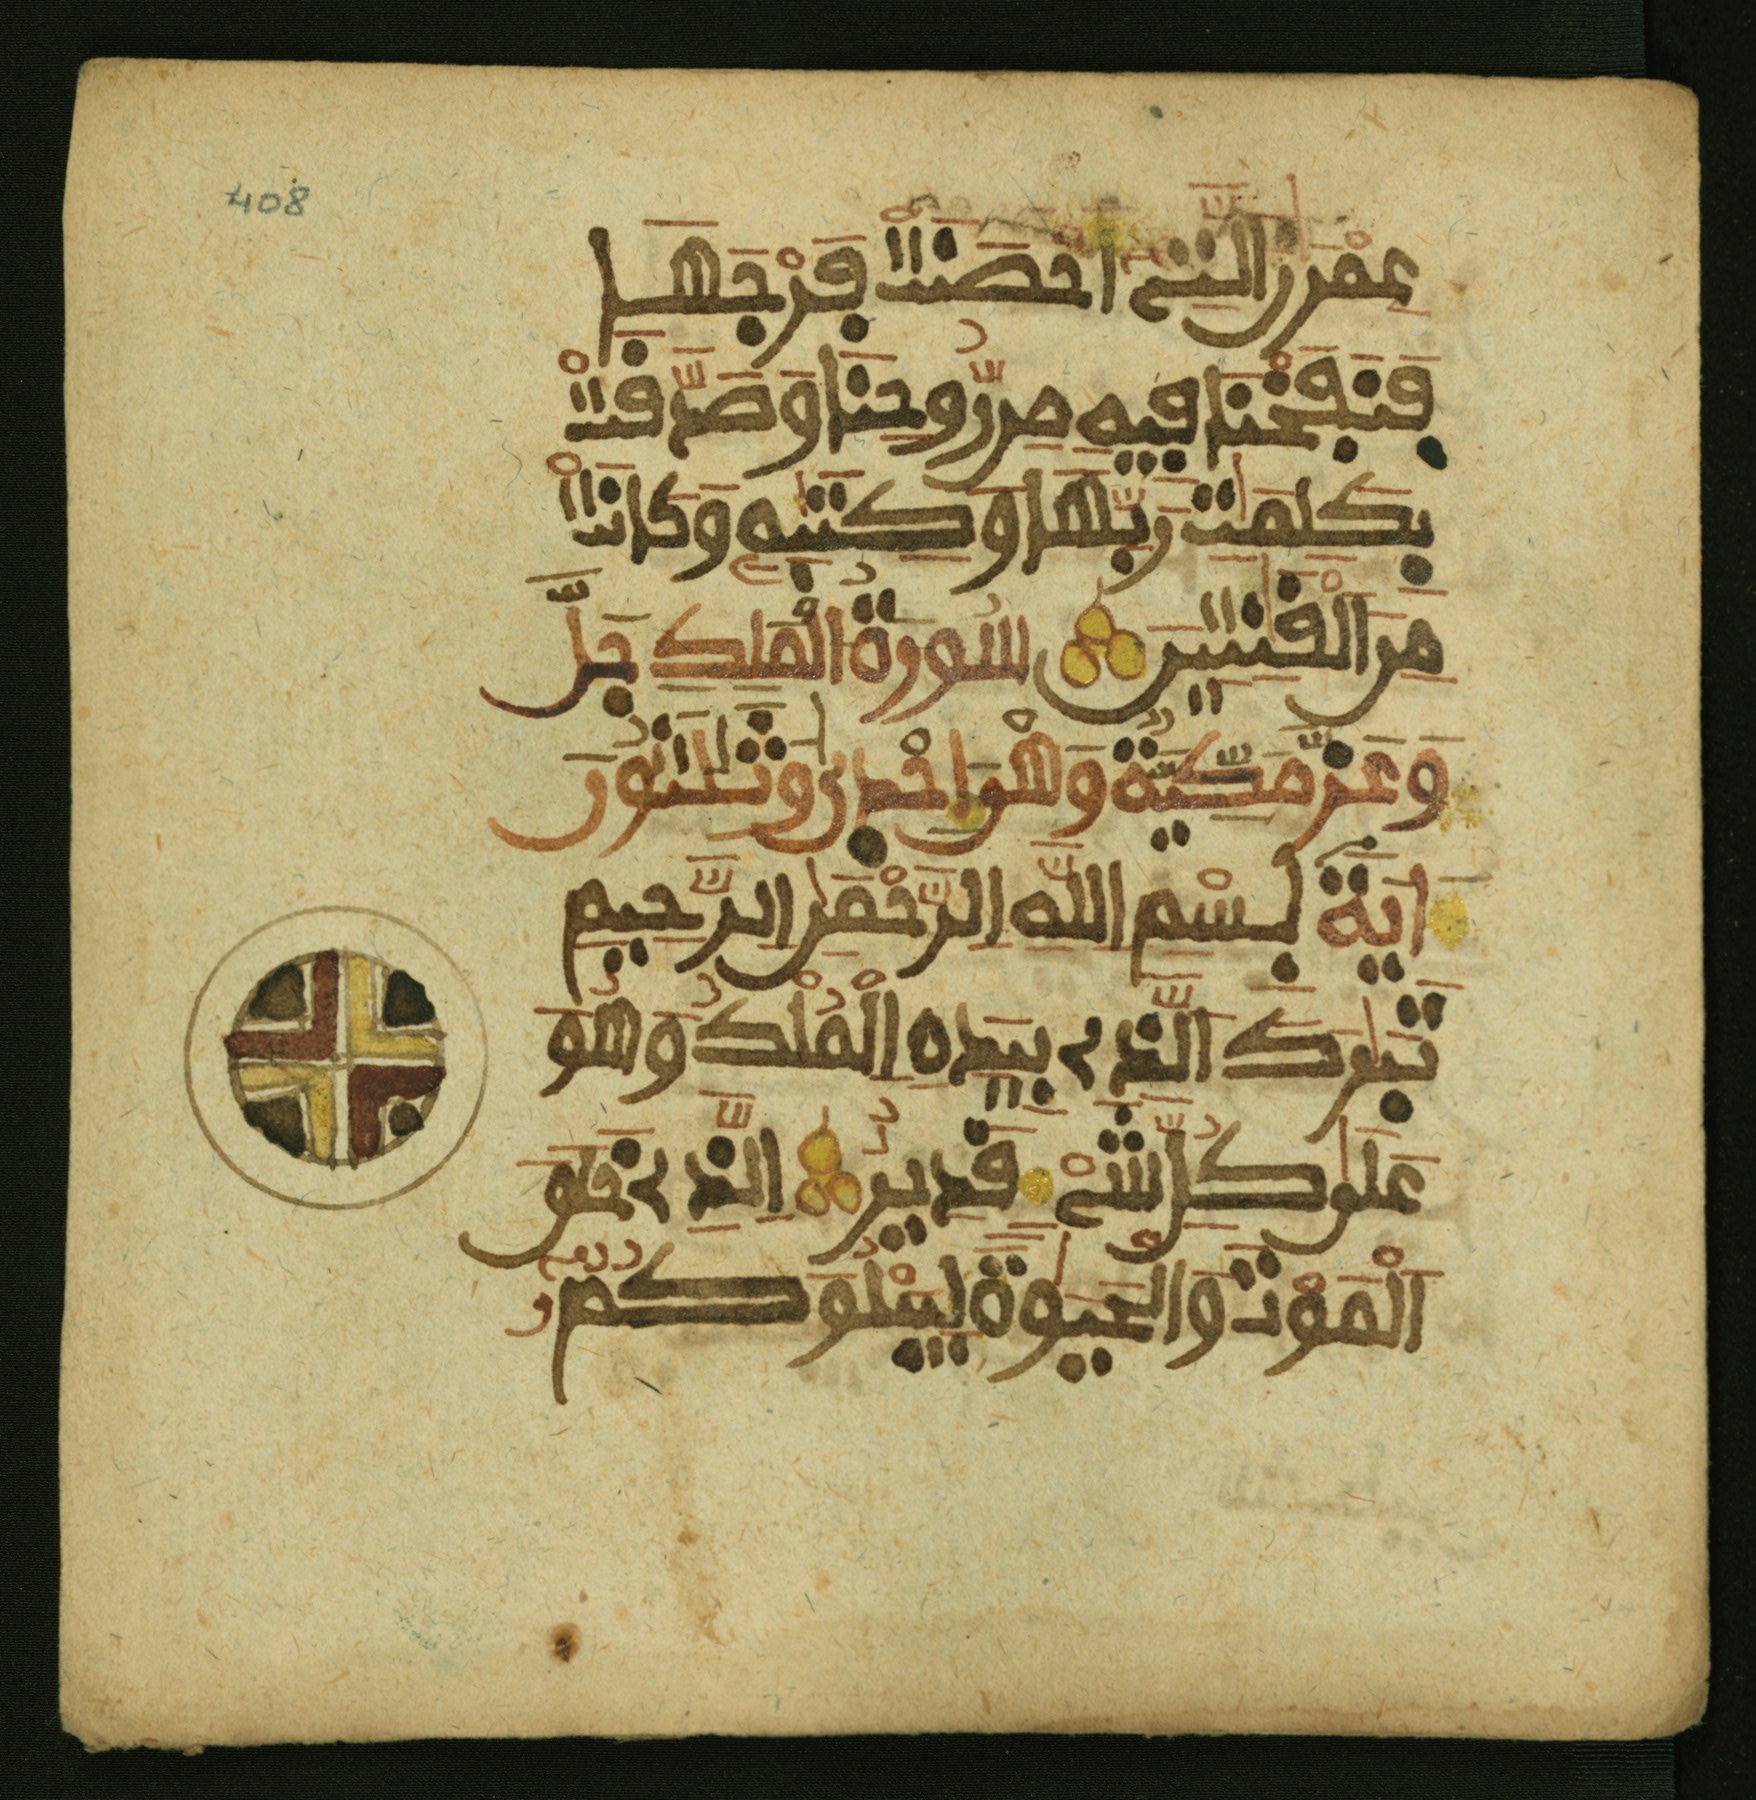 408
عِمْرَٰنَ ٱلتِے أَحْصَنَتْ فَرْجَهَا
فَنَفَخْنَا فِيهِ مِن رُّوحِنَا وَصَدَّقَتْ
بِكَلِمَٰتِ رَبِّهَا وَكِتَٰبِهِۦ وَكَانَتْ
مِنَ ٱلْقَٰنِتِينَ سُورَةُ الْمُلْكِ جَلَّ
وَعَزَّ مَكِّيَّةٌ وَهْوَ إِحْدَىٰ وَثَلَٰثُونَ
ءَايَةً بِسْمِ اللَّهِ الرَّحْمَٰنِ الرَّحِيمِ
تَبَٰرَكَ الَّذِے بِيَدِهِ الْمُلْكُ وَهُوَ
عَلَىٰ كُلِّ شَيْءٍ قَدِيرٌ الَّذِے خَلَقَ
الْمَوْتَ وَالْحَيَوٰةَ لِيَبْلُوَكُمُۥ